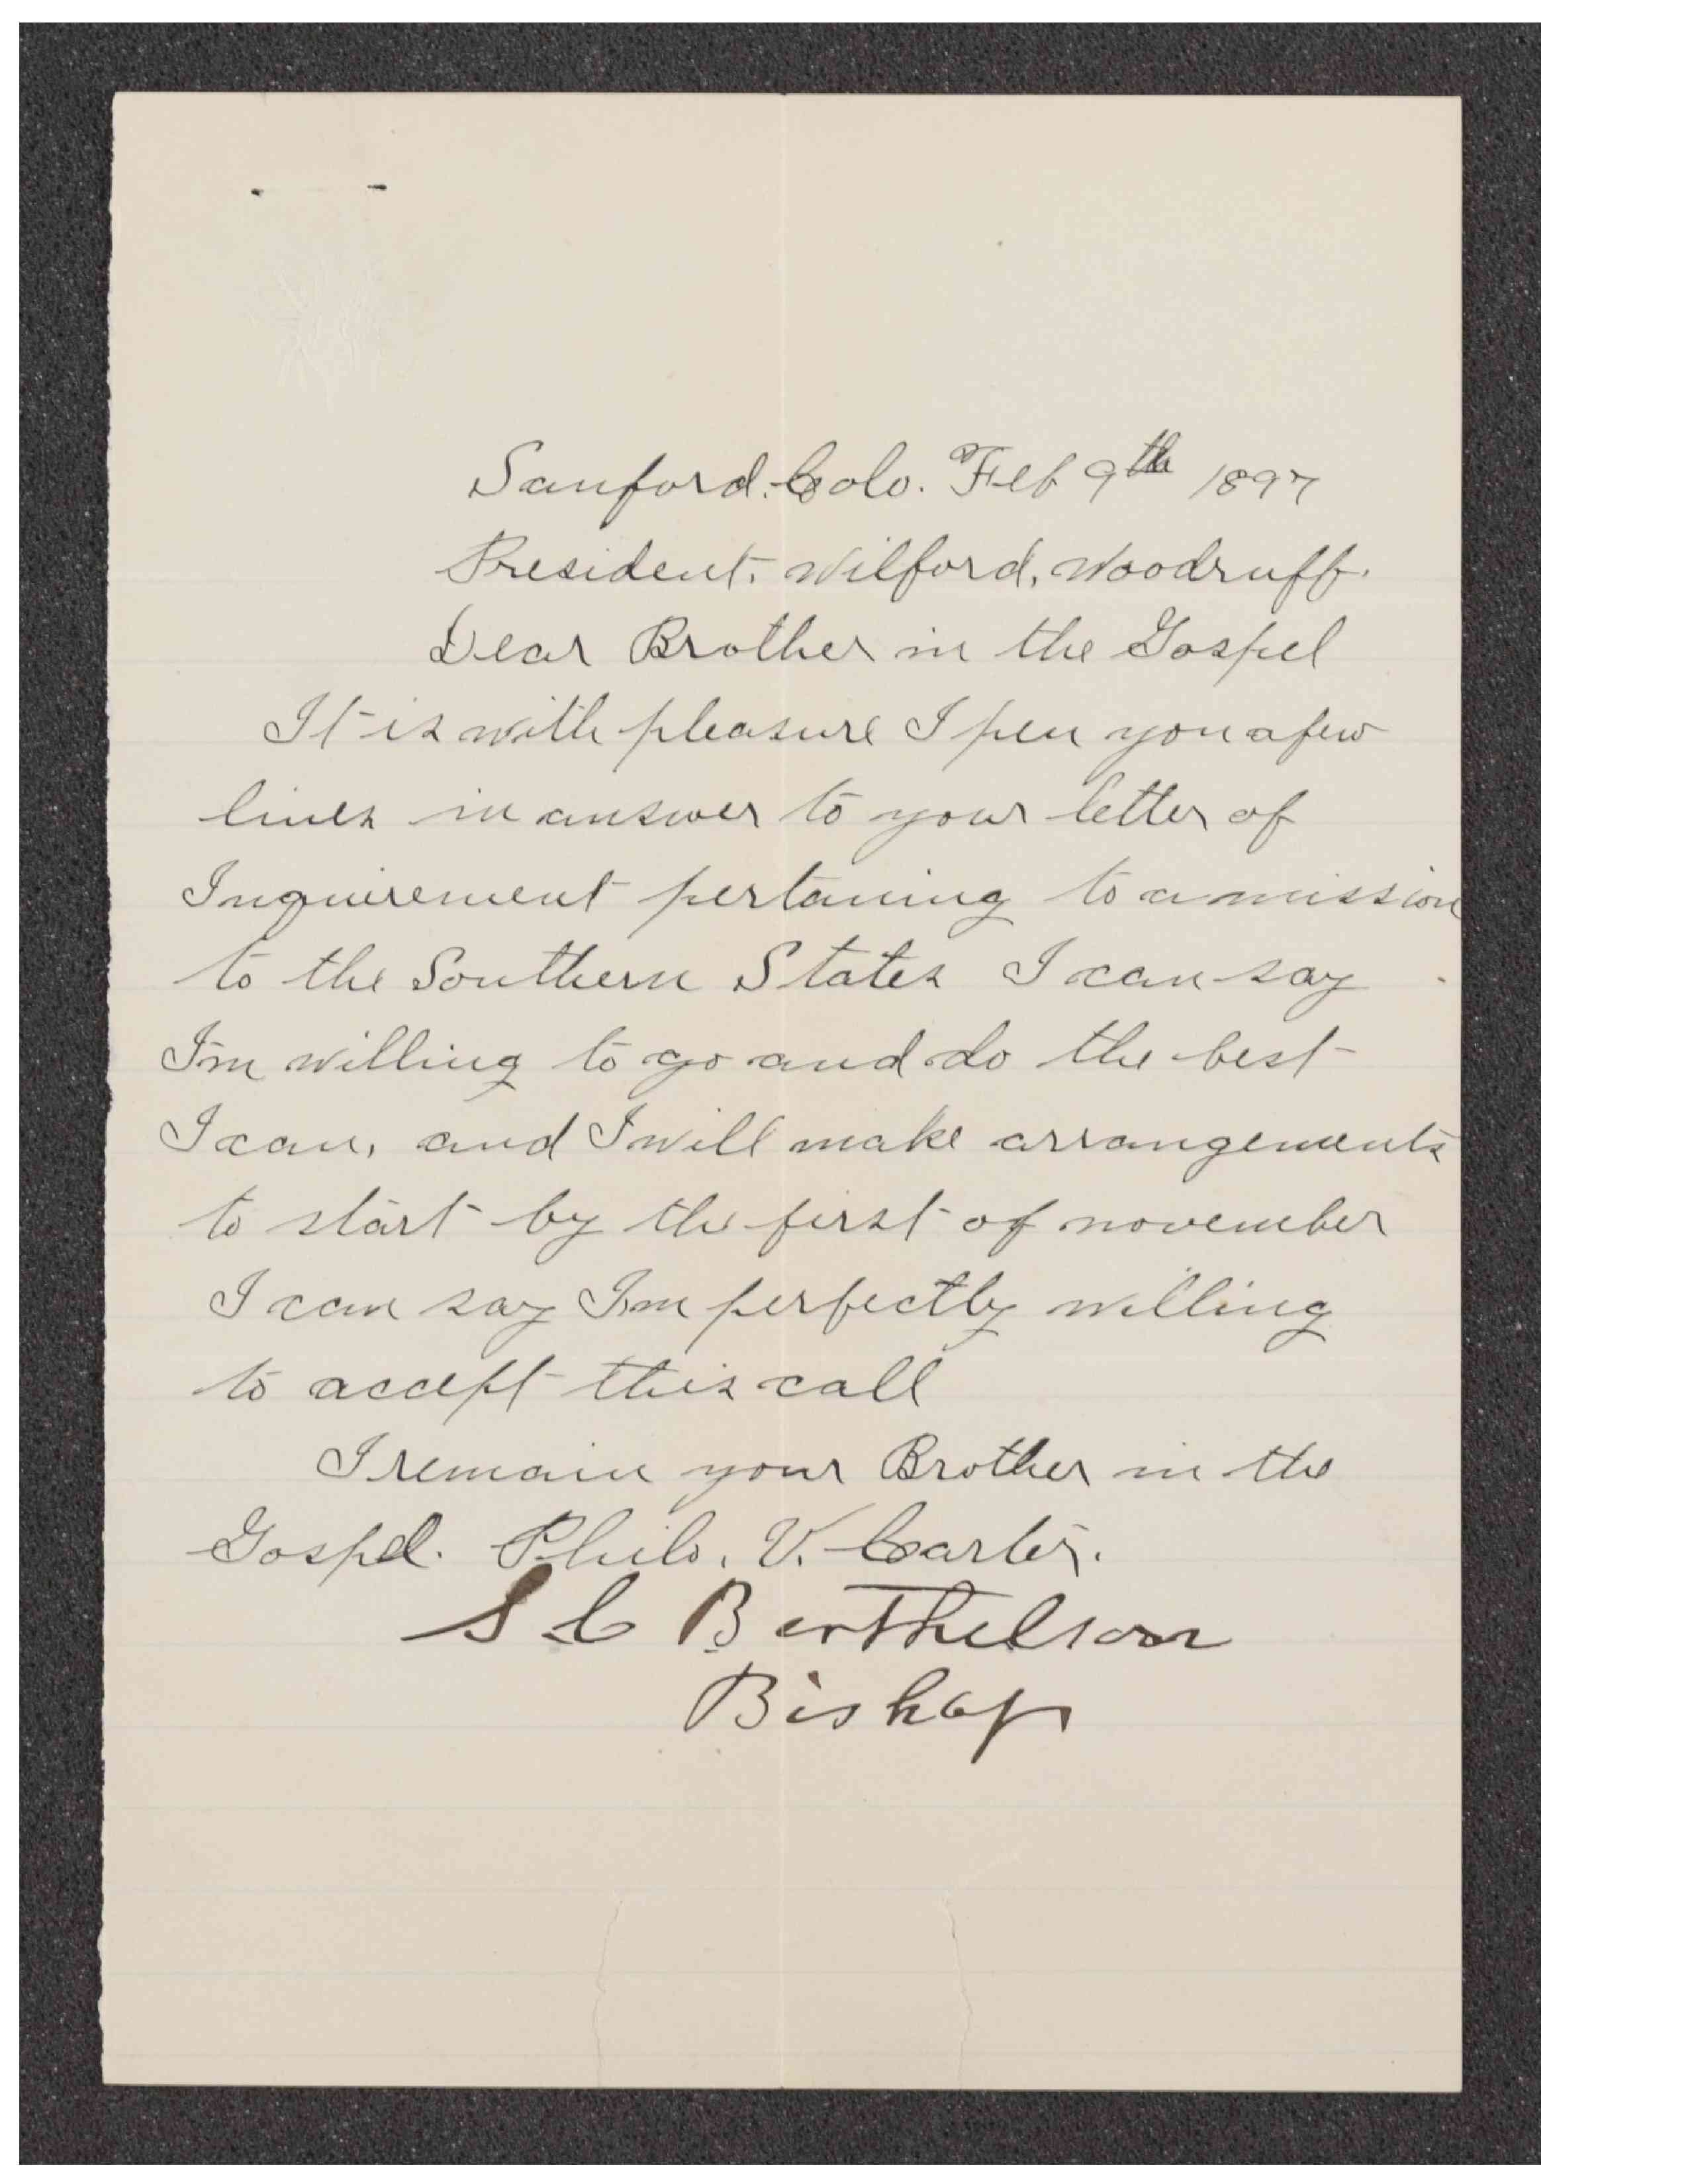 Sanford. Colo. Feb 9th 1897
President. Wilford, Woodruff.
Dear Brother in the Gospel
It is with pleasure I pen you a few
lines in answer to your letter of
Inquirement pertaning to a mission
to the Southern States I can say
I'm willing to go and do the best
I can, and I will make arrangements
to start by the first of november
I can say I'm perfectly willing
to accept this call
I remain your Brother in the
Gospel. Philo. V. Carter.
S C Berthelson
Bishop